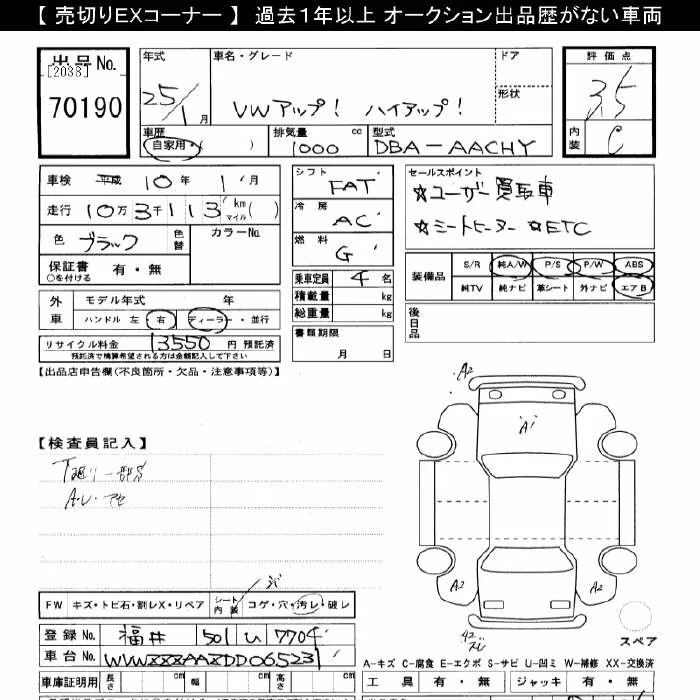 【 売切りEXコーナー 】 過去1年以上 オークション出品歴がない車両
出品No.
[2038]
70190
年式
25/1月
車名・グレード
VWアップ! ハイアップ!
ドア
形状
評価点
3.5
内装
C
車歴
自家用・( )
排気量 cc
1000
型式
DBA-AACHY
車検 平成 10年 1月
走行 10万3千113 km マイル( )
色 ブラック 色替
カラーNo.
保証書 有・無
○を付ける
外車
モデル年式 年
ハンドル 左 右 ディーラー・並行
リサイクル料金 13550 円 預託済
預託済で精算希望される方は金額記入して下さい
シフト
FAT
冷房
AC
燃料
G
乗車定員 4 名
積載量 kg
総重量 kg
書類期限
月 日
セールスポイント
☆ユーザー買取車
☆シートヒーター ☆ETC
装備品
S/R 純A/W P/S P/W ABS
純TV 純ナビ 革シート 外ナビ エアB
後日品
【出品店申告欄(不良箇所・欠品・注意事項等)】
【検査員記入】
下廻り一部S
A・U・アセ
A2
A1
A2
A2
A2
スペア
FW キズ・トビ石・割レX・リペア
シート内装 コゲ・穴・汚レ・破レ
登録No. 福井 501 U 7704
車台No. WVWZZZAAZDD065231
車庫証明用 長さ cm 幅 cm 高さ cm
A-キズ C-腐食 E-エクボ S-サビ U-凹ミ W-補修 XX-交換済
工具 有・無 ジャッキ 有・無